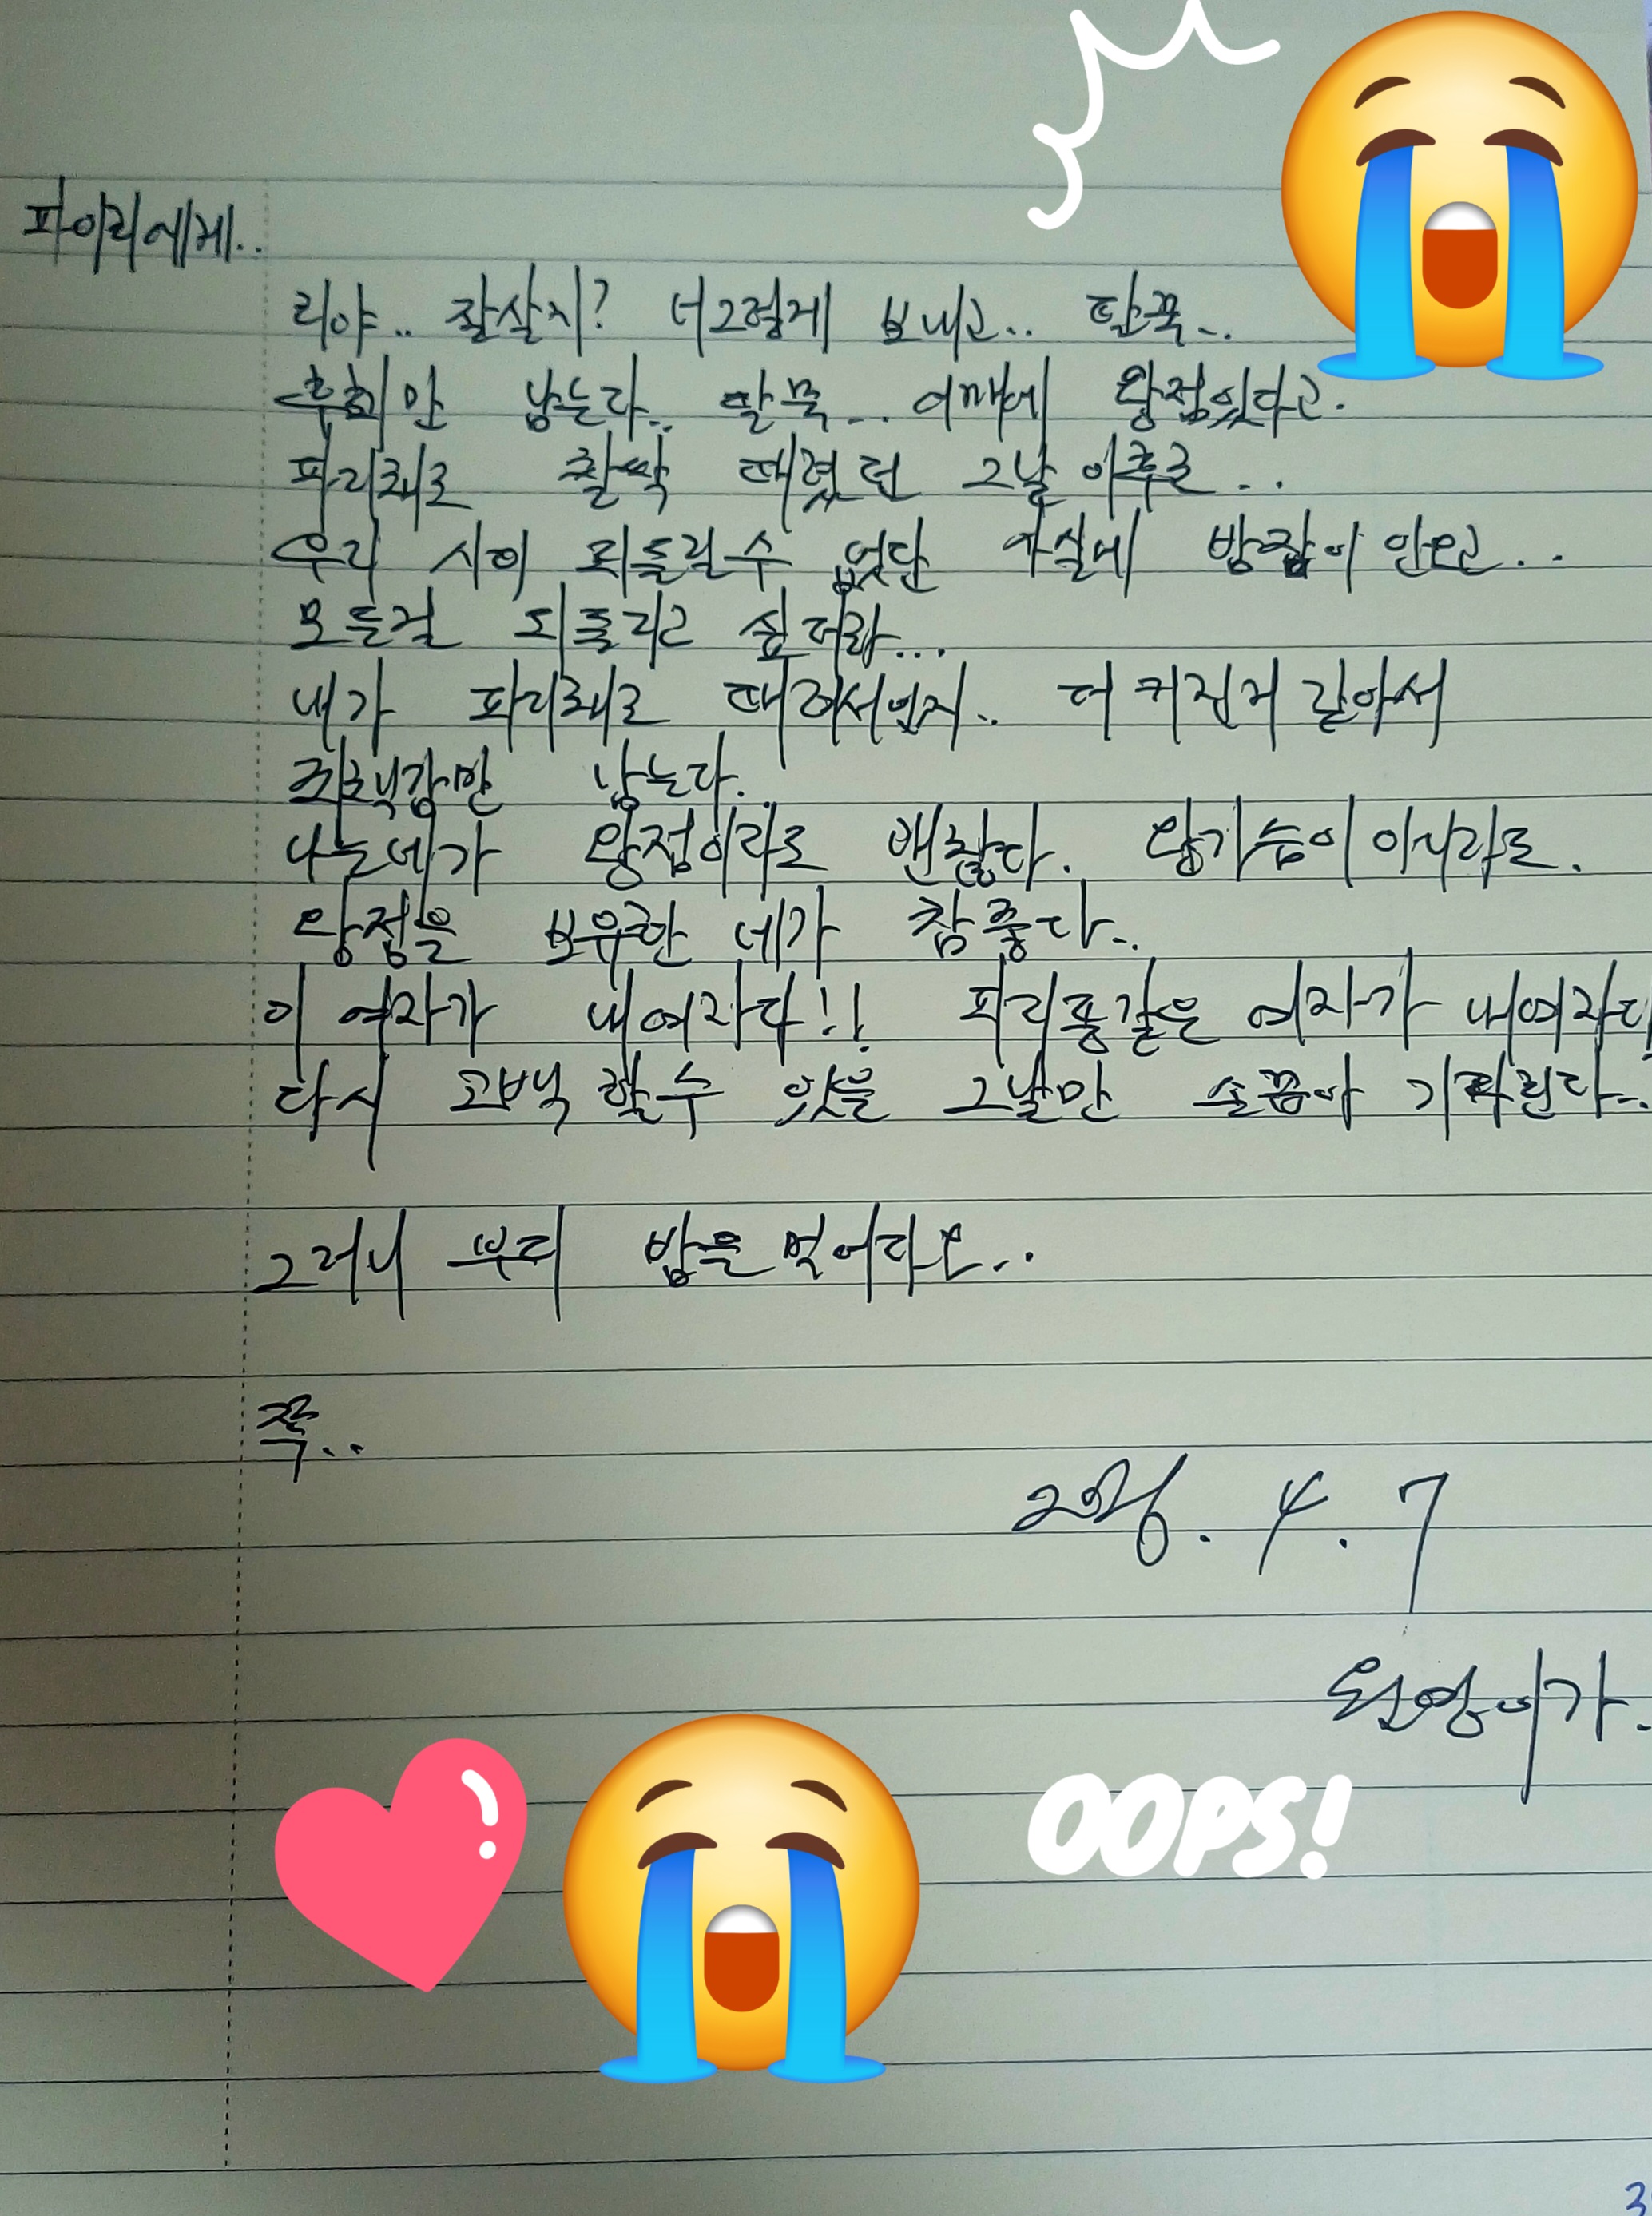 파이리에게..
리야.. 잘살지? 너그렇게 보내고..
후회만 남는다.. 어깨에 왕점있다고.
파리채로 찰싹 때렸던 그날 이후로..
우리 사이 되돌릴수 없단 사실에 밤잠이 안오고..
모든걸 되돌리고 싶더라...
내가 파리채로 때려서인지.. 더 커진거 같아서
죄책감만 남는다.
나는네가 왕점이라도 괜찮다. 왕가슴이 아니라도.
왕점을 보유한 네가 참좋다..
이 여자가 내여자다!! 파리똥같은 여자가 내여자다
다시 고백 할수 있을 그날만 손꼽아 기다린다..
그러니 부디 밥을 먹어다오..
쪽..
2026. 4. 7
원영이가.
OOPS!